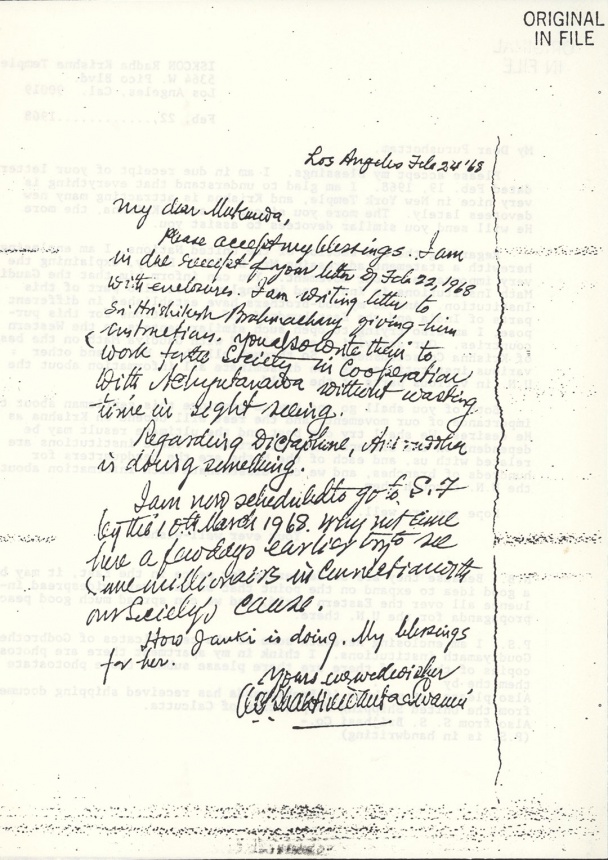 ORIGINAL
IN FILE
Los Angeles Feb 24 '68
My dear Mukunda,
Please accept my blessings. I am
in due receipt of your letter of Feb 22, 1968
with enclosures. I am writing letter to
Sri Hrishikesh Brahmachary giving him
instructions. You also write them to
work for the Society in Cooperation
with Achyutananda without wasting
time in sight seeing.
Regarding Dictaphone,
is doing something.
I am now scheduled to go to S.F
by the 10th March 1968. Why not come
here a few days earlier to see
some millionairs in connection with
our Society's cause.
How Janki is doing. My blessings
for her.
Yours ever well wisher
A.C. Bhaktivedanta Swami